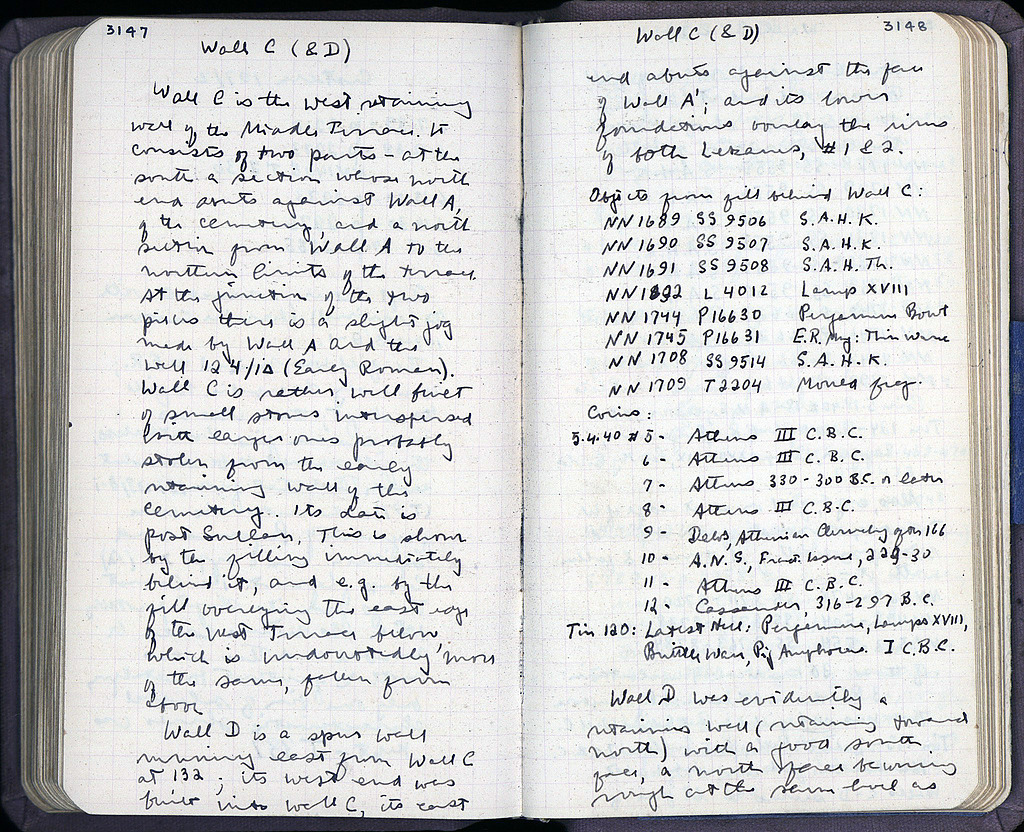 3147
Wall C (& D)
Wall C is the west retaining
wall of the Middle Terrace. It
consists of two parts – at the
south a section whose north
end abuts against Wall A,
of the cemetery, and a north
section from Wall A to the
northern limits of the terrace.
At the junction of the two
pieces there is a slight jog
made by Wall A and the
well 124/1Δ (Early Roman).
Wall C is rather well built
of small stones interspersed
with larger ones probably
stolen from the early
retaining wall of the
cemetery. Its date is
post Sullan. This is shown
by the filling immediately
behind it, and e.g. by the
fill overlying the east edge
of the West Terrace below
which is undoubtedly more
of the same, fallen from
above.
Wall D is a spur wall
running east from Wall C
at 132; its west end was
built into Wall C, its east
3148
Wall C (& D)
end abuts against the face
of Wall A'; and its lower
foundations overlay the rims
of both Lekanes, #1 & 2.
Objects from fill behind Wall C:
NN 1689 SS 9506 S.A.H.K.
NN 1690 SS 9507 S.A.H.K.
NN 1691 SS 9508 S.A.H.Th.
NN 1692 L 4012 Lamp XVIII
NN 1744 P16630 Pergamene Bowl
NN 1745 P16631 E.R. Mug: Thin Ware
NN 1708 SS 9514 S.A.H.K.
NN 1709 T 2204 Mould frag.
Coins:
5.4.40 #5 - Athens III C.B.C.
6 - Athens III C.B.C.
7 - Athens 330-300 B.C. or later
8 - Athens III C.B.C.
9 - Delos, Athenian Cleruchy after 166
10 - A.N.S., Fract. Issue, 229-30
11 - Athens III C.B.C.
12 - Cassander, 316-297 B.C.
Tin 120: Latest Hell: Pergamene, Lamps XVIII,
Brittle Ware, Pig Amphorae I C.B.C.
Wall D was evidently a
retaining wall (retaining toward
north) with a good south
face, a north face becoming
rough at the same level as